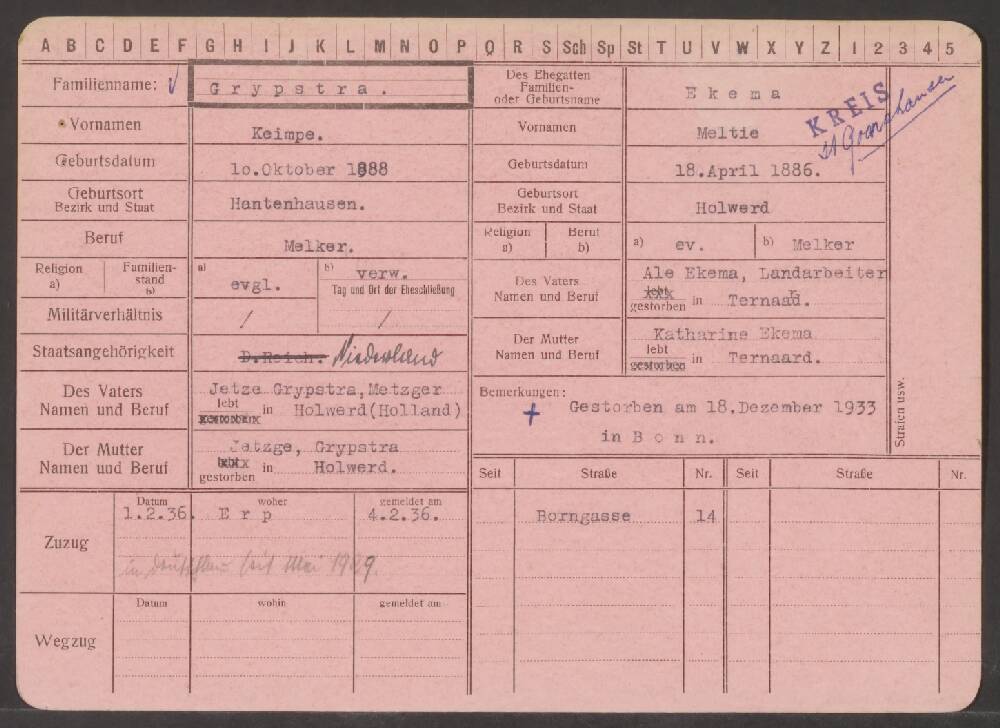 A B C D E F G H I J K L M N O P Q R S Sch Sp St T U V W X Y Z 1 2 3 4 5
Familienname: Grypstra.
Vornamen Keimpe.
Geburtsdatum 10.Oktober 1888
Geburtsort Bezirk und Staat Hantenhausen.
Beruf Melker.
Religion a) Familienstand b) a) evgl. b) verw.
Tag und Ort der Eheschließung
Militärverhältnis / /
Staatsangehörigkeit D.Reich. Niederland
Des Vaters Namen und Beruf Jetze Grypstra, Metzger
lebt gestorben in Holwerd(Holland)
Der Mutter Namen und Beruf Jetzge, Grypstra
lebt gestorben in Holwerd.
Des Ehegatten Familien- oder Geburtsname Ekema
KREIS
Vornamen Meltie
Geburtsdatum 18.April 1886.
Geburtsort Bezirk und Staat Holwerd
Religion a) Beruf b) a) ev. b) Melker
Des Vaters Namen und Beruf Ale Ekema, Landarbeiter
lebt gestorben in Ternaard.
Der Mutter Namen und Beruf Katharine Ekema
lebt gestorben in Ternaard.
Bemerkungen:
+ Gestorben am 18.Dezember 1933
in Bonn.
Strafen usw.
Zuzug
Datum woher gemeldet am
1.2.36. Erp 4.2.36.
in Deutschland seit Mai 1929.
Wegzug
Datum wohin gemeldet am
Seit Straße Nr. Seit Straße Nr.
Borngasse 14